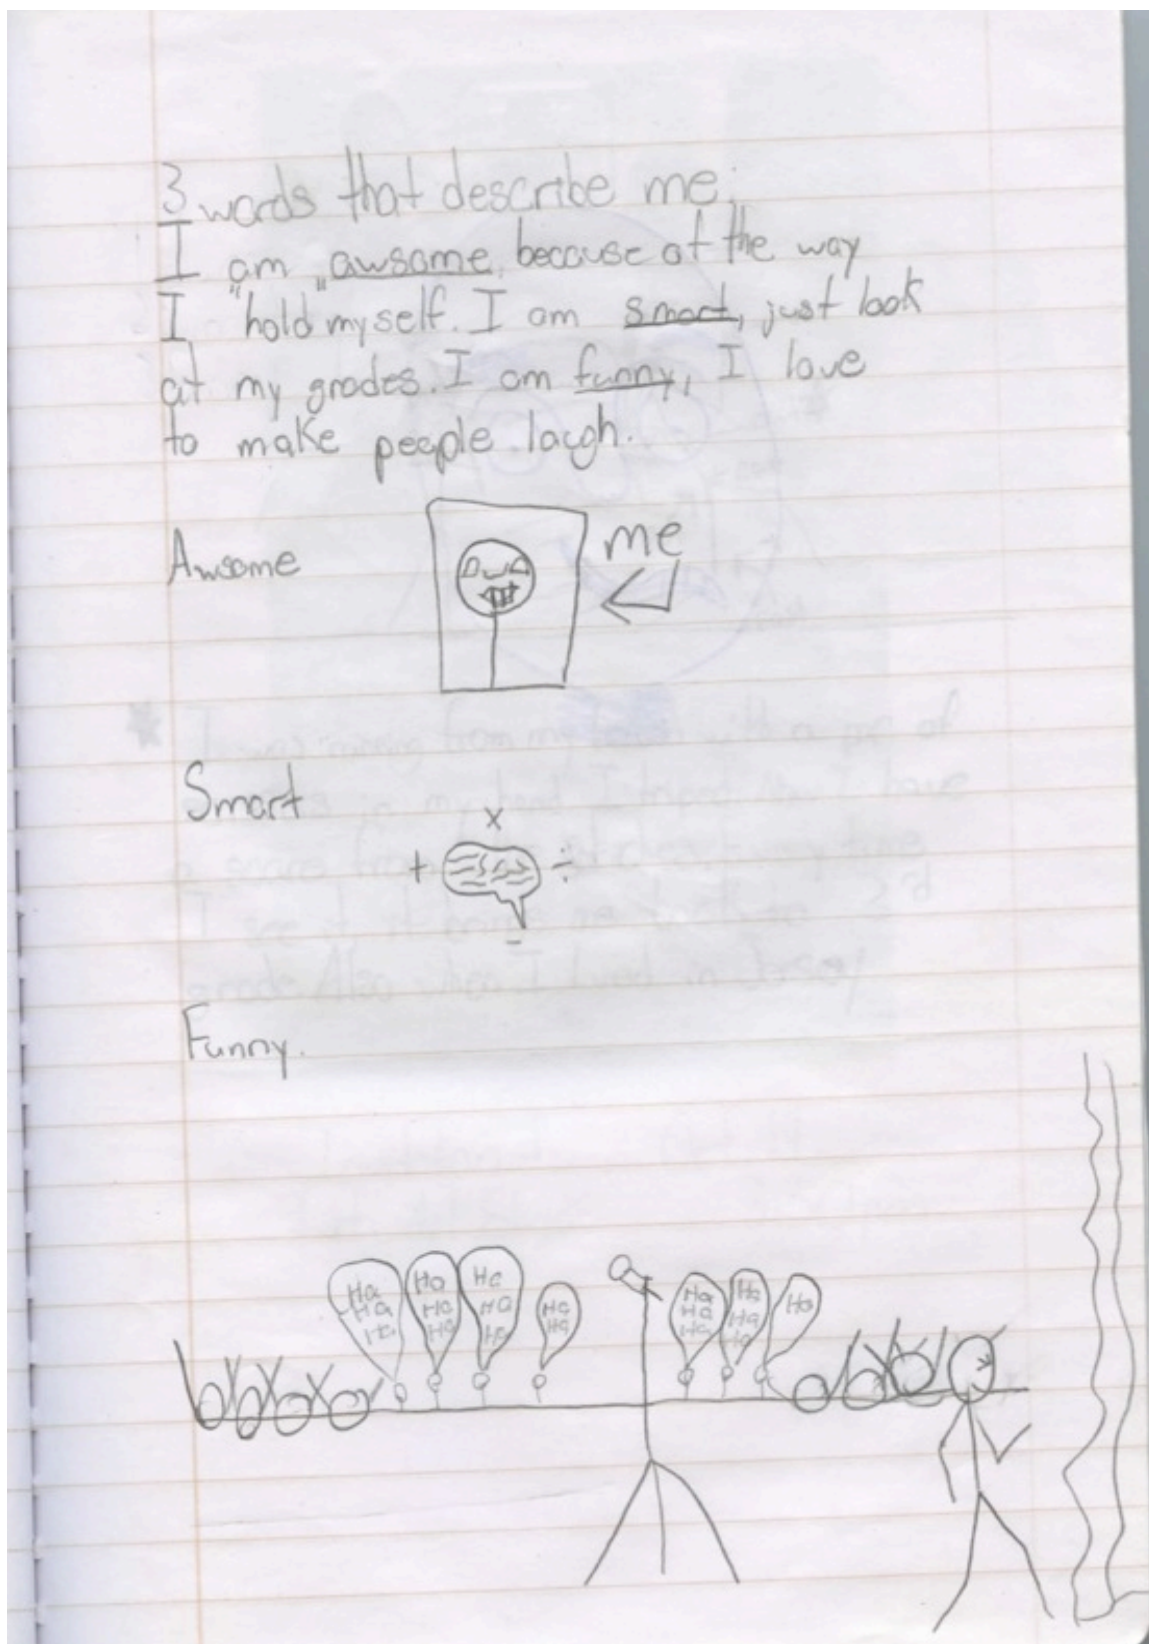 3 words that describe me:
I am "awsome" because of the way
I "hold" myself. I am smart, just look
at my grades. I am funny, I love
to make people laugh.
Awsome
me
Smart
x
+ ÷
-
Funny.
Ha Ha Ha Ha Ha Ha
Ha Ha Ha Ha Ha Ha
Ha Ha Ha Ha Ha Ha